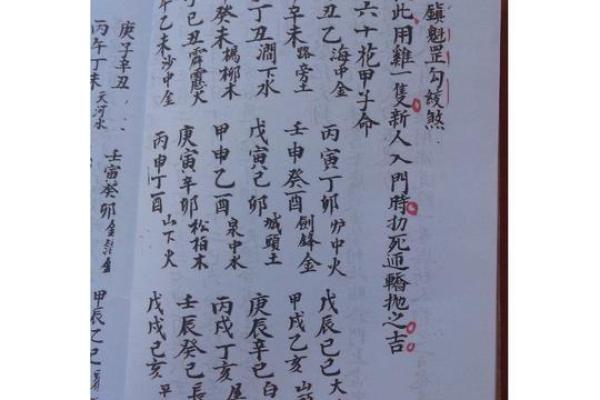 鎮魁罡勾絞煞
此用雞一隻新人入門時扐死迊轎抛之吉
六十花甲子命
丑乙海中金 丙寅丁卯炉中火 戊辰己巳大
辛未路旁土 壬申癸酉劍鋒金 甲戌乙亥山
丁丑澗下水 戊寅己卯城頭土 庚辰辛巳白
癸未楊柳木 甲申乙酉泉中水 丙戌丁亥屋
己丑霹靂火 庚寅辛卯松柏木 壬辰癸巳長
乙未沙中金 丙申丁酉山下火 戊戌己亥
庚子辛丑 壬寅癸卯金箔金 甲辰乙巳
丙午丁未天河水